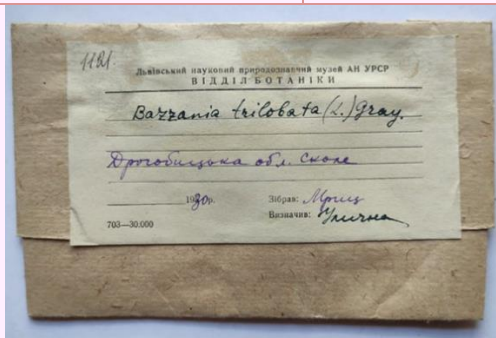 1121.
Львівський науковий природознавчий музей АН УРСР
ВІДДІЛ БОТАНІКИ
Bazzania trilobata (L.) Gray.
Дрогобицька обл. Сколе
1930р.
Зібрав: Мриц
Визначив: Улична
703—30.000